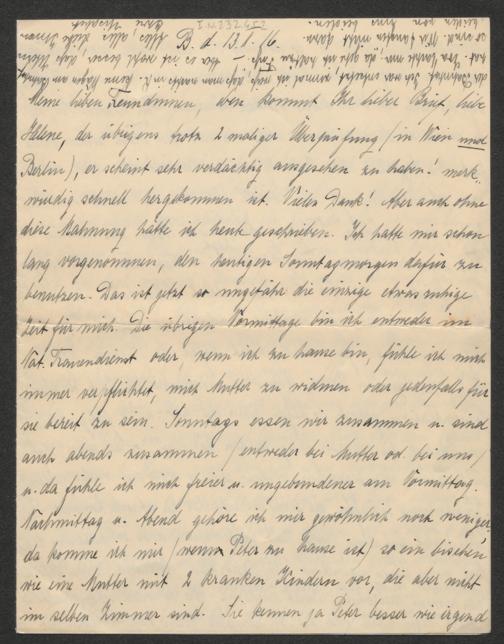 I.N. 232.452
B. d. 13.I.16.
Meine lieben Freundinnen, eben kommt Ihr lieber Brief, liebe
Helene, der übrigens trotz 2 maliger Überprüfung (in Wien und
Berlin), er scheint sehr verdächtig ausgesehen zu haben! merk-
würdig schnell hergekommen ist. Vielen Dank! Aber auch ohne
diese Mahnung hätte ich heute geschrieben. Ich hatte mir schon
lang vorgenommen, den heutigen Sonntagmorgen dafür zu
benutzen. Das ist jetzt so ungefähr die einzige etwas ruhige
Zeit für mich. Die übrigen Vormittage bin ich entweder im
Nat. Frauendienst oder, wenn ich zu hause bin, fühle ich mich
immer verpflichtet, mich Mutter zu widmen oder jedenfalls für
sie bereit zu sein. Sonntags essen wir zusammen u. sind
auch abends zusammen (entweder bei Mutter od. bei uns)
u. da fühle ich mich freier u. ungebundener am Vormittag.
Nachmittag u. Abend gehöre ich mir gewöhnlich noch weniger,
da komme ich mir (wenn Peter zu hause ist) so ein bischen
wie eine Mutter mit 2 kranken Kindern vor, die aber nicht
im selben Zimmer sind. Sie kennen ja Peter besser wie irgend